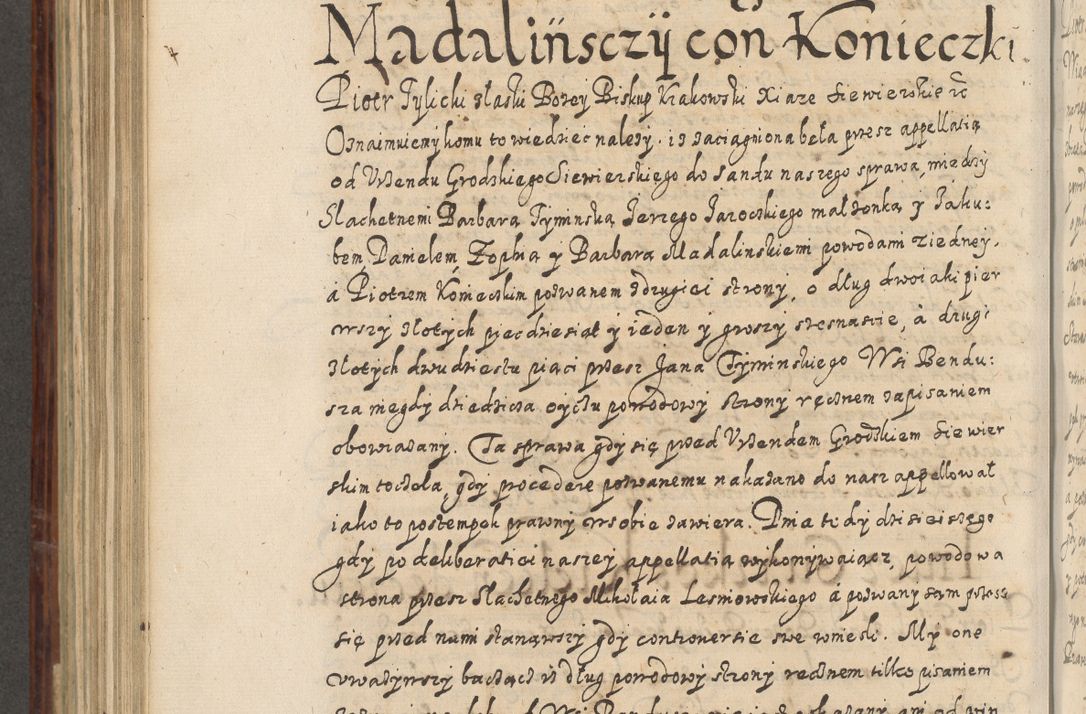 Madalińsczÿ con Konieczki
Piotr Tylicki z łaski Bozey Biskup Krakowski Xiaze Siewierskie etc
Oznaimuiemy komu to wiedziec nalezy. iz zaciagniona beła przesz appellatią
od Vrzendu Grodzkiego Siewierskiego do Sandu naszego sprawa, między
Slachetnemi Barbarą Tyminską Jerzego Jaroczkiego małzonką y Jaku:
bem Danielem Zophią y Barbarą Madalinskiemi powodami z iedney,
á Piotrem Konieczkim pozwanem z drugiei strony, o dług dwoiaki pier
wszy złotych piecdziesiąt y ieden y groszy szesnascie, á drugi
złotych dwudziestu piąci przesz Jana Tyminskiego Wsi Bendu:
sza niegdy dziedzica oyczu powodowy strony ręcznem zapisaniem
obowiazany. Ta sprawa gdy się przed Vrzendem Grodzkiem Siewier
skim toczeła, gdy procedere pozwanemu nakazano do nasz appellował
iako to postempek prawny w sobie zawiera. Dnia tedy dzisieiszego
gdy po deliberatiei naszey appellatią wykonywaiącz, powodowa
strona przesz Slachetnego Mikołaia Lesniowskiego á pozwany sam przesz
się przed nami stanąwszy gdy controversie swe wniesli. My one
vwazywszy baczącz iz dług powodowy strony ręcznem tilko pisaniem